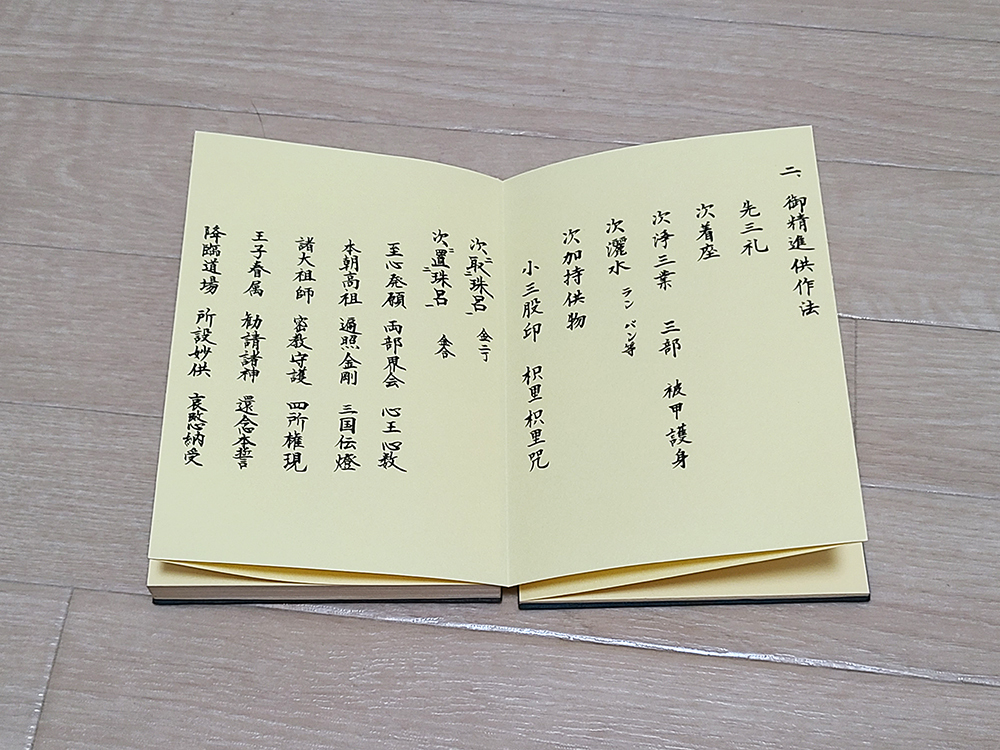 二、御精進供作法
先三礼
次着座
次浄三業 三部 被甲護身
次灑水 ラン バン等
次加持供物
小三股印 枳里枳里咒
次取二珠呂一 金二丁
次置二珠呂一
至心発願 両部界会 心王心数
本朝高祖 遍照金剛 三国伝燈
諸大祖師 密教守護 四所権現
王子眷属 勧請諸神 還念本誓
降臨道場 所設妙供 哀愍納受